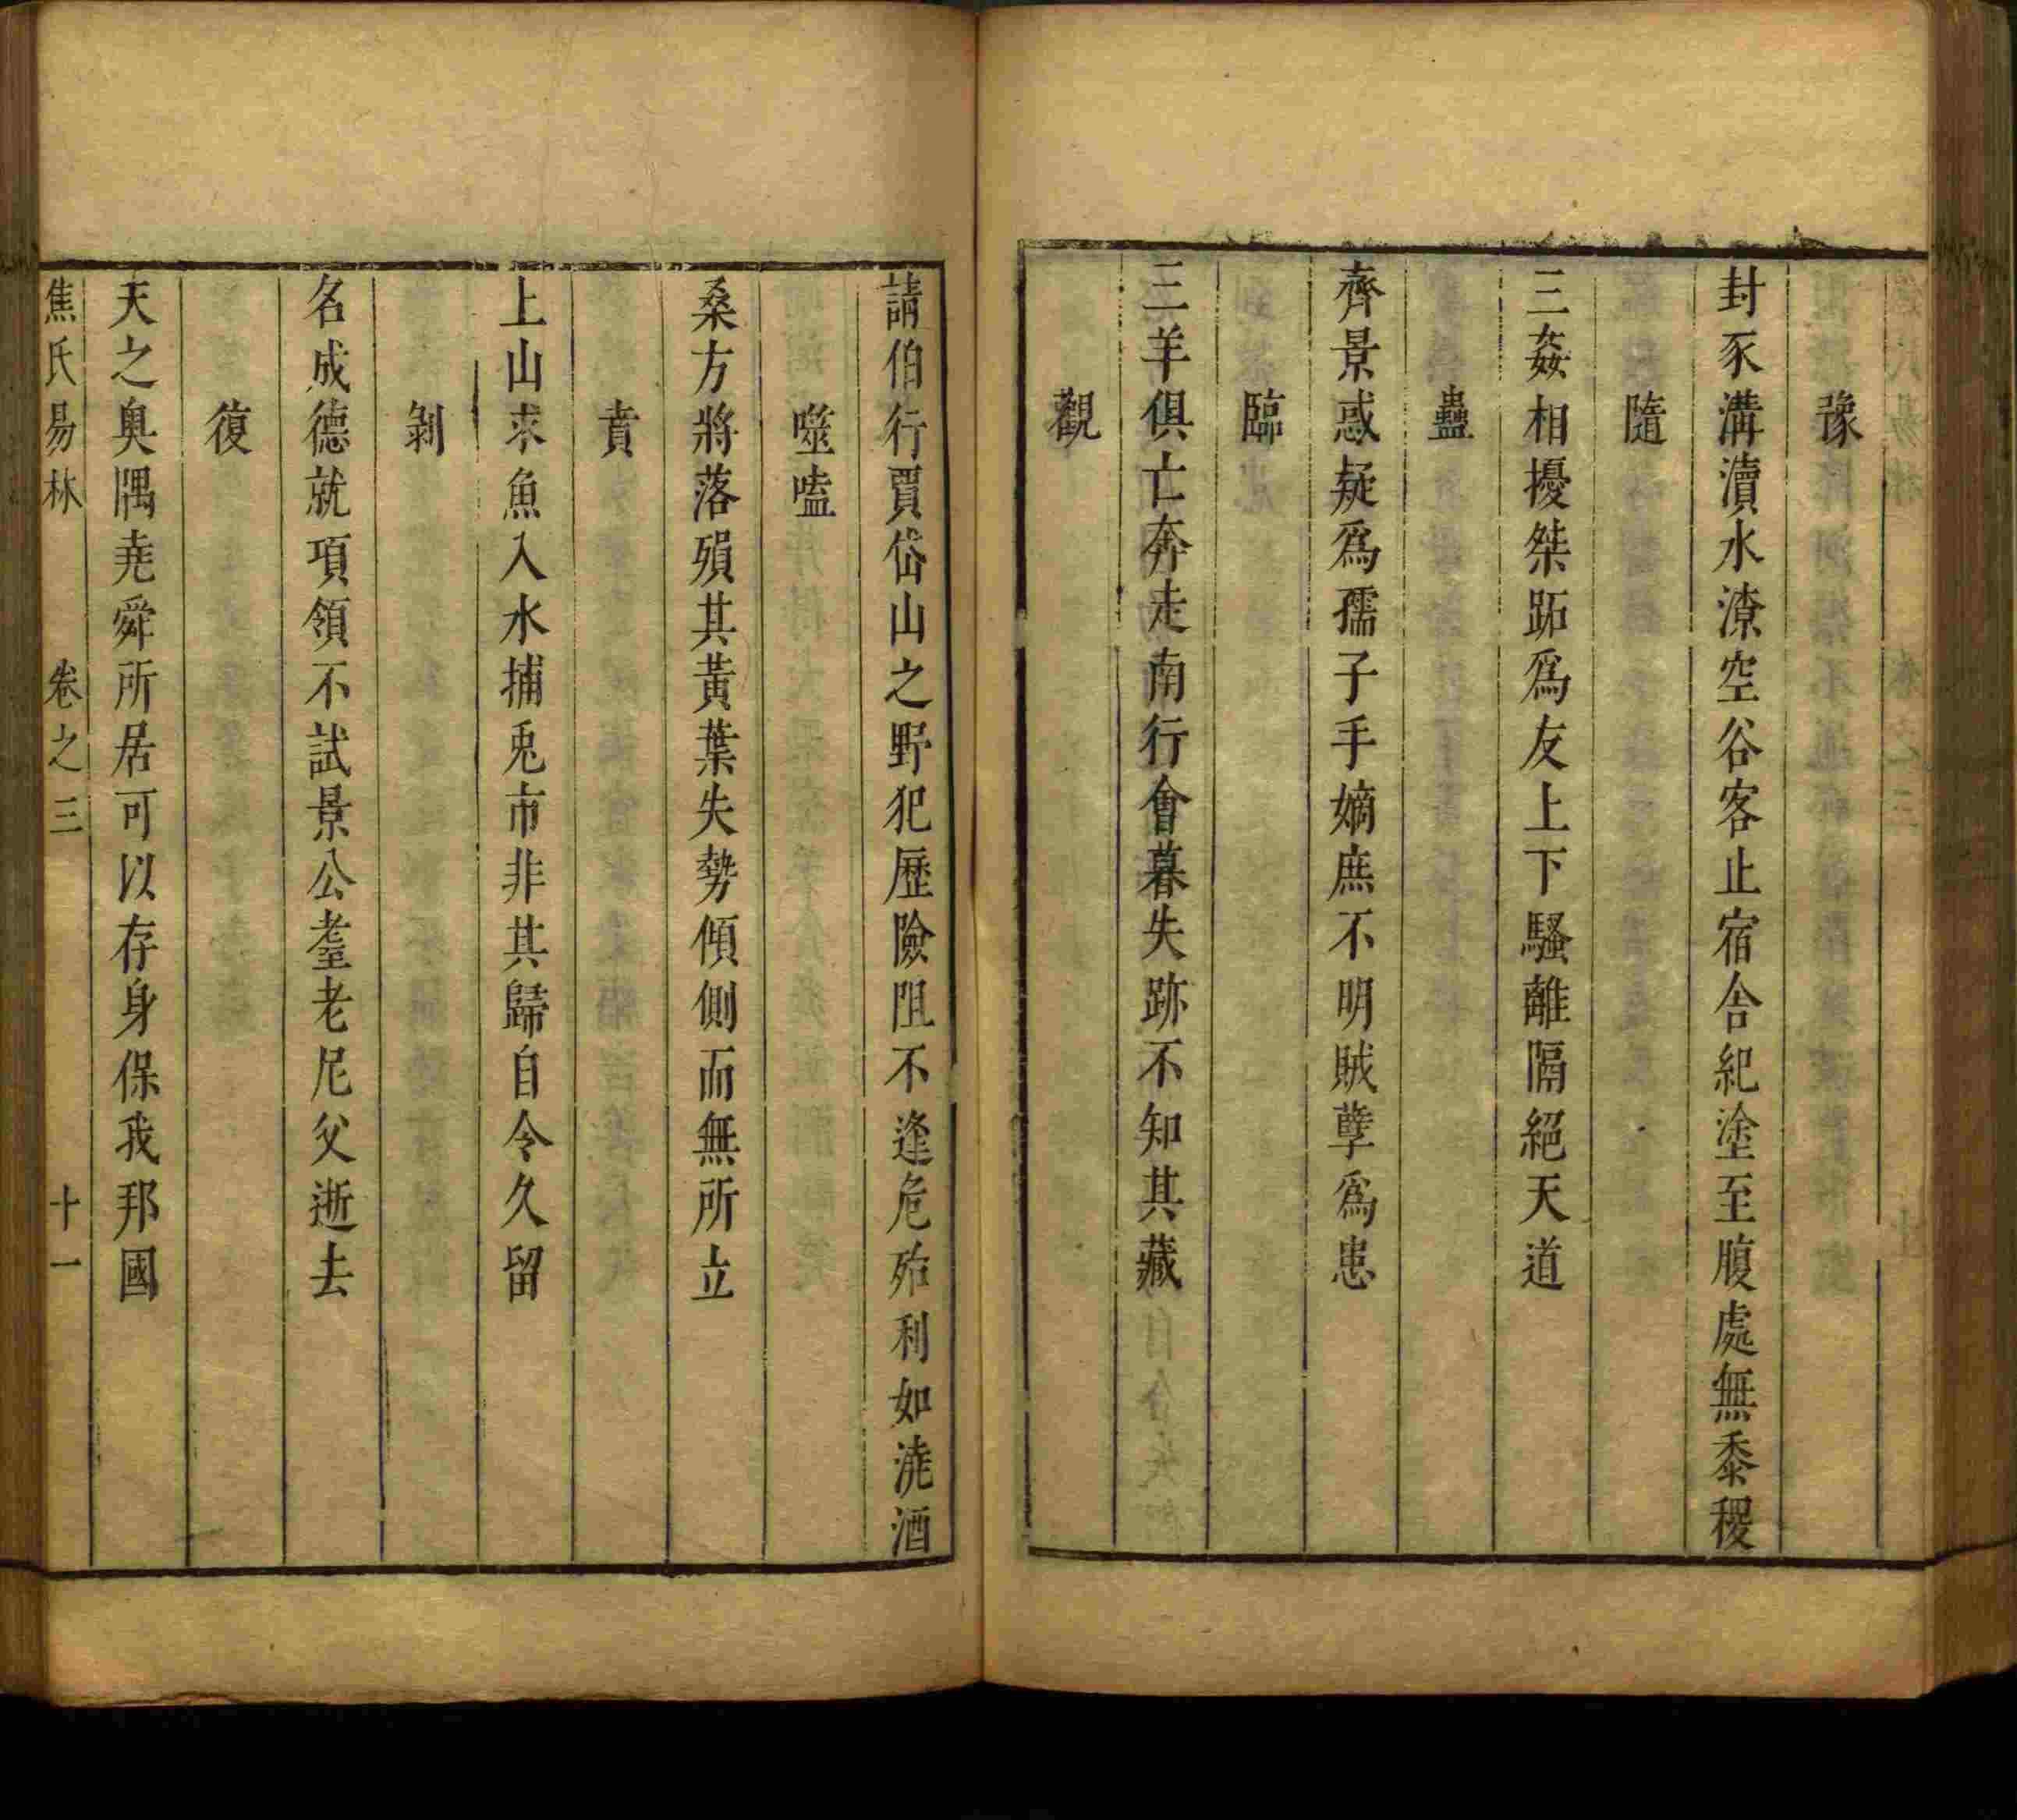 豫
封豕溝瀆水潦空谷客止宿舍紀塗至腹處無黍稷
隨
三姦相擾桀跖爲友上下騷離隔絕天道
蠱
齊景惑疑爲孺子手嫡庶不明賊孽爲患
臨
三羊俱亡奔走南行會暮失跡不知其藏
觀
請伯行賈岱山之野犯歷險阻不逢危殆利如澆酒
噬嗑
桑方將落殞其黃葉失勢傾側而無所立
賁
上山求魚入水捕兎市非其歸自令久留
剝
名成德就項領不試景公耋老尼父逝去
復
天之奧隅堯舜所居可以存身保我邦國
焦氏易林 卷之三 十一